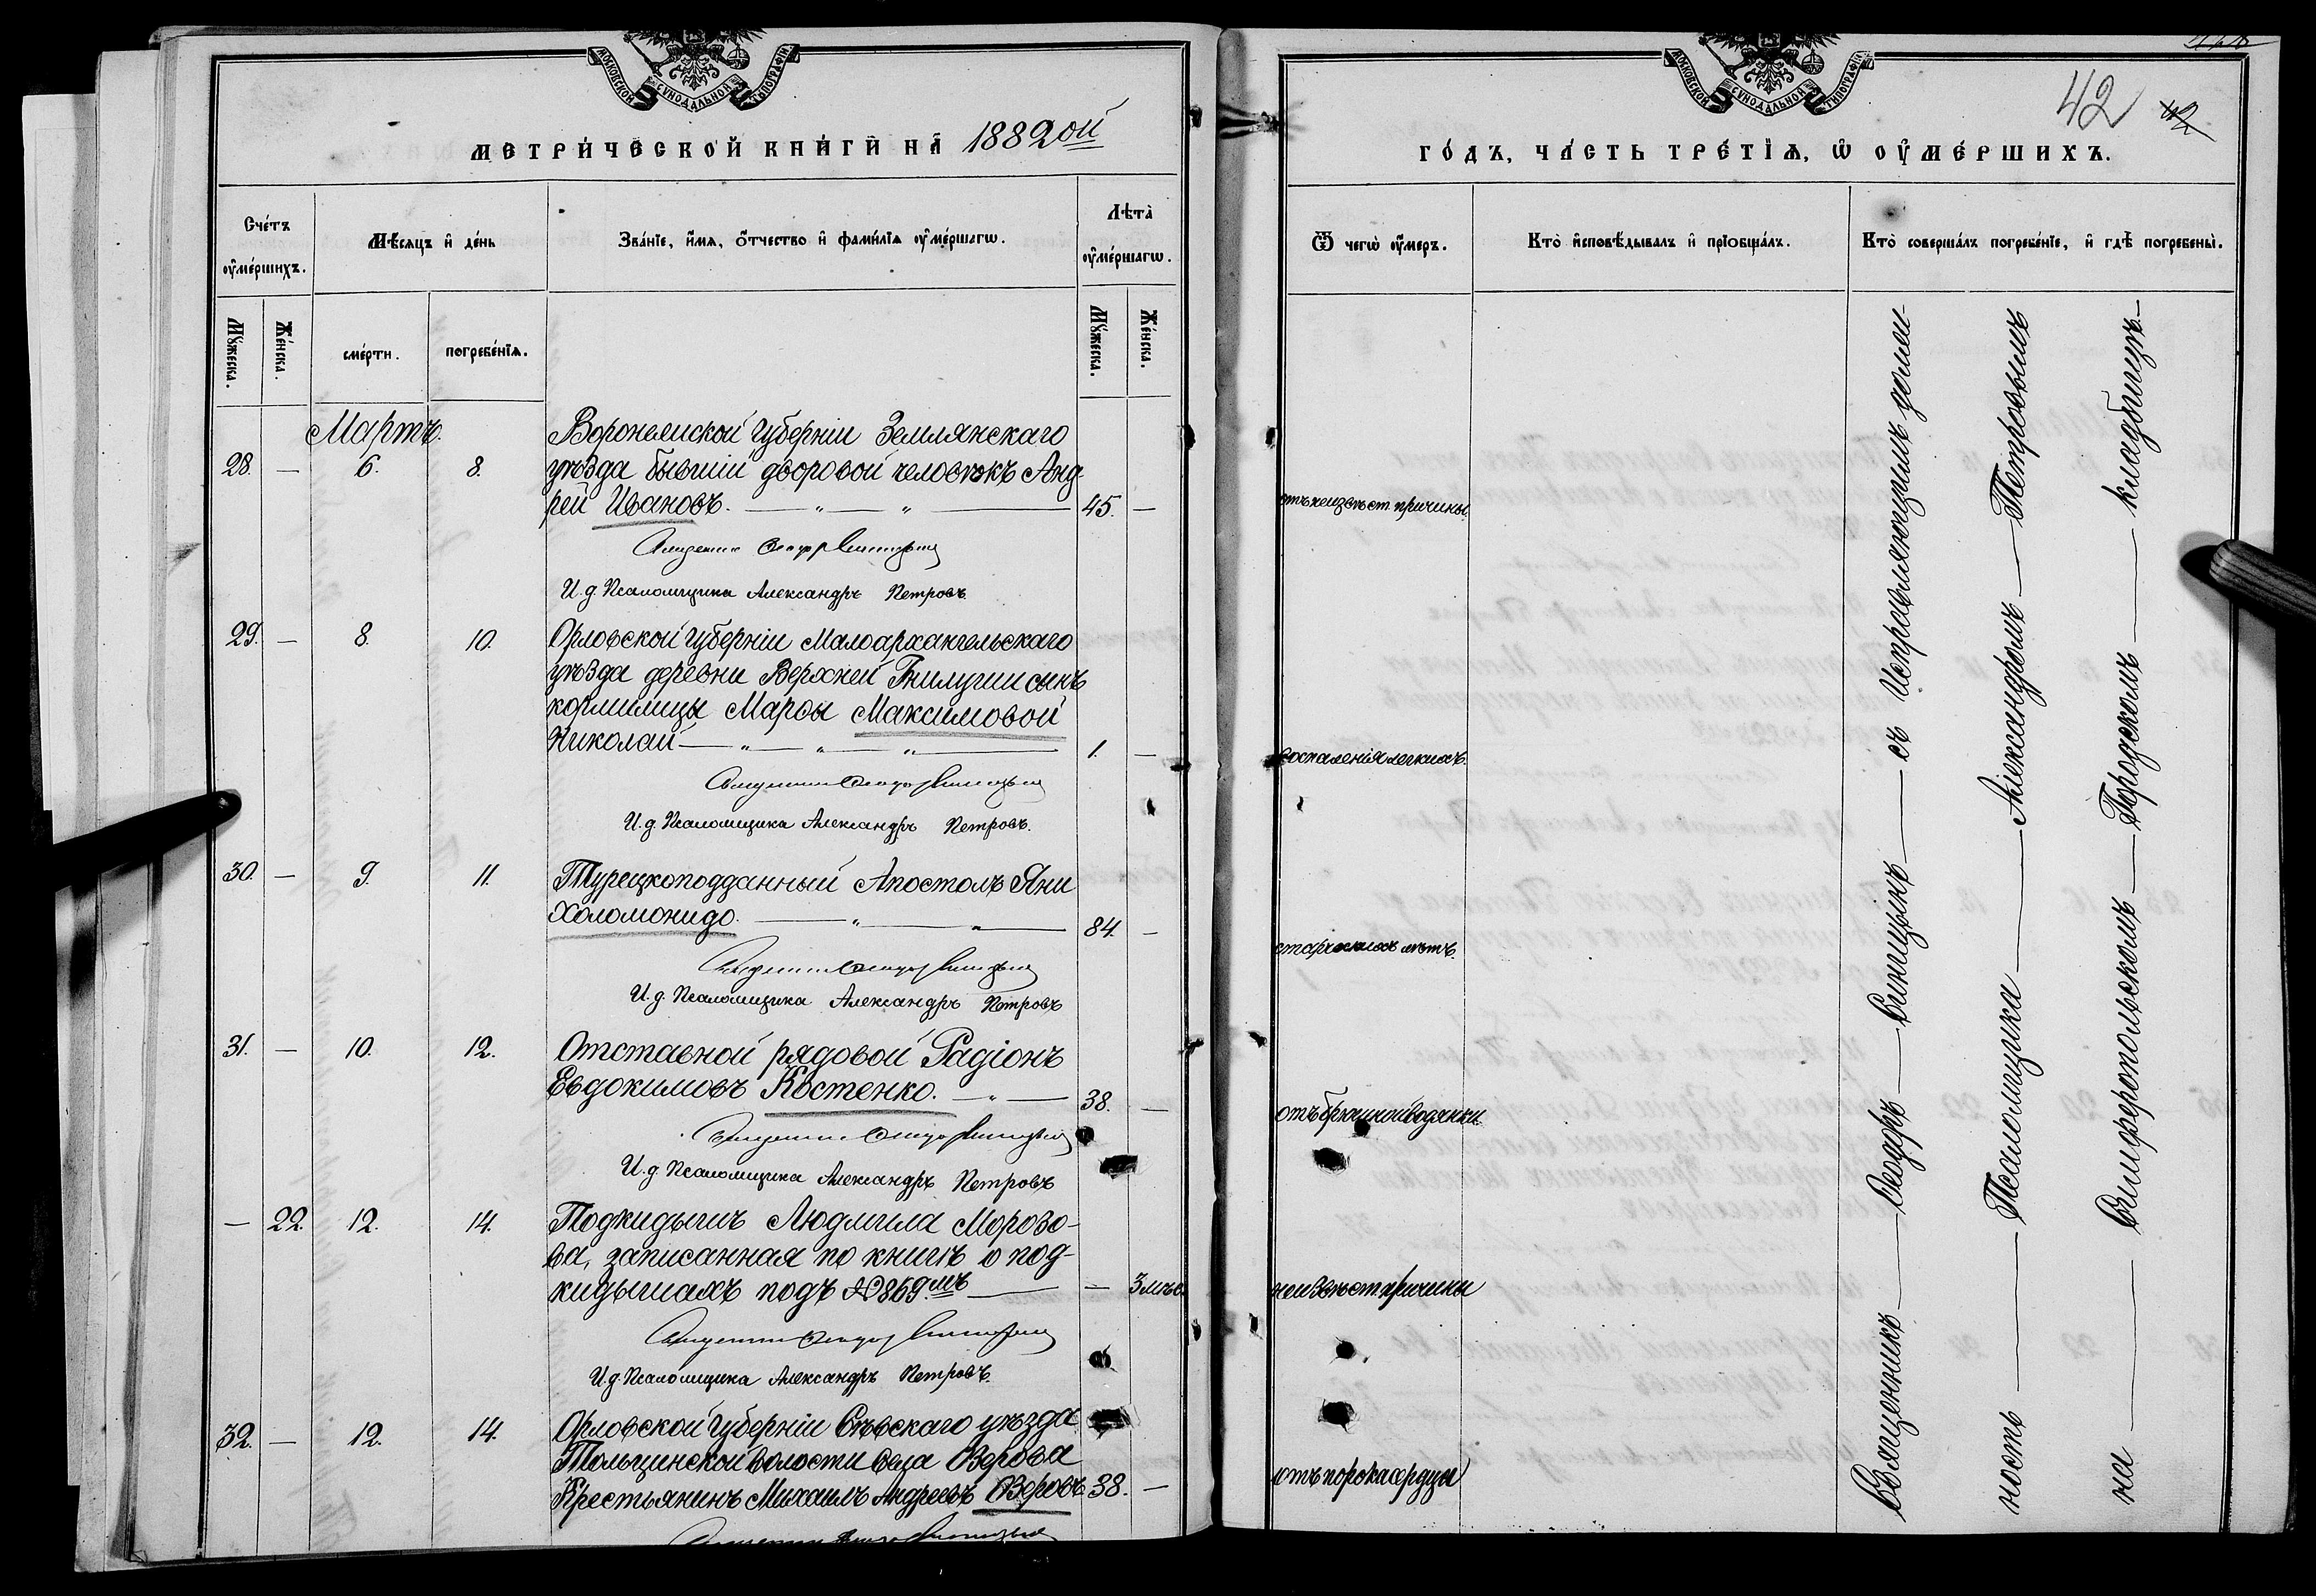 МОСКОВСКОЙ СѴНОДАЛЬНОЙ ТѴПОГРАФІИ
МЕТРИ́ЧЕСКОЙ КНИ́ГИ НА 1882ой
Сче́тъ ᲂу҆ме́ршихъ.
Мѣ́сяцъ и҆ де́нь
Зва́нїе, и҆́мѧ, ѻ҆́тчество и҆ фами́лїѧ ᲂу҆ме́ршагѡ.
Лѣта̀ ᲂу҆ме́ршагѡ.
Мꙋ́жеска.
Же́нска.
сме́рти.
погребе́нїѧ.
Мꙋ́жеска.
Же́нска.
Мартъ.
28. — 6. 8.
Воронежской губерніи Землянскаго
уѣзда бывшій дворовой человѣкъ Анд-
рей Ивановъ. — „ — „ — 45. —
И. д. Псаломщика Александръ Петровъ.
29. — 8. 10.
Орловской губерніи Малоархангельскаго
уѣзда деревни Верхней Гнилуши сынъ
кормилицы Марѳы Максимовой
Николай — „ — „ — „ — 1. —
И. д. Псаломщика Александръ Петровъ.
30. — 9. 11.
Турецкоподданный Апостолъ Яни
Холомонидо. — „ — „ — 84. —
И. д. Псаломщика Александръ Петровъ
31. — 10. 12.
Отставной рядовой Радіонъ
Евдокимовъ Костенко. — „ — 38. —
И. д. Псаломщика Александръ Петровъ
— 22. 12. 14.
Подкидышъ Людмила Морозо-
ва, записанная по книгѣ о под-
кидышахъ подъ №869.мъ — — 3 мѣс.
И. д. Псаломщика Александръ Петровъ.
32. — 12. 14.
Орловской губерніи Сѣвскаго уѣзда
волости села Ѳерова
Крестьянинъ Михаилъ Андреевъ Ѳеровъ 38. —
МОСКОВСКОЙ СѴНОДАЛЬНОЙ ТИПОГРАФІИ
42 42
ГО́ДЪ, ЧА́СТЬ ТРЕ́ТЇѦ, Ѡ҆ ОУ҆МЕ́РШИХЪ.
Ѿ чегѡ̀ ᲂу҆́меръ.
Кто̀ и҆сповѣ́дывалъ и҆ прїѡбща́лъ.
Кто̀ соверша́лъ погребе́нїе, и҆ гдѣ̀ погребены̀.
отъ неизвѣст. причины.
воспаленія легкихъ.
старческихъ лѣтъ.
отъ брюшной водянки.
неизвѣст. причины
отъ порока сердца
Священникъ — Ѳеодръ — Виницынъ — съ Исправляющимъ долж-
ность — Псаломщика — Александромъ — Петровымъ
на — Симферопольскомъ — Городскомъ — кладбищѣ. —